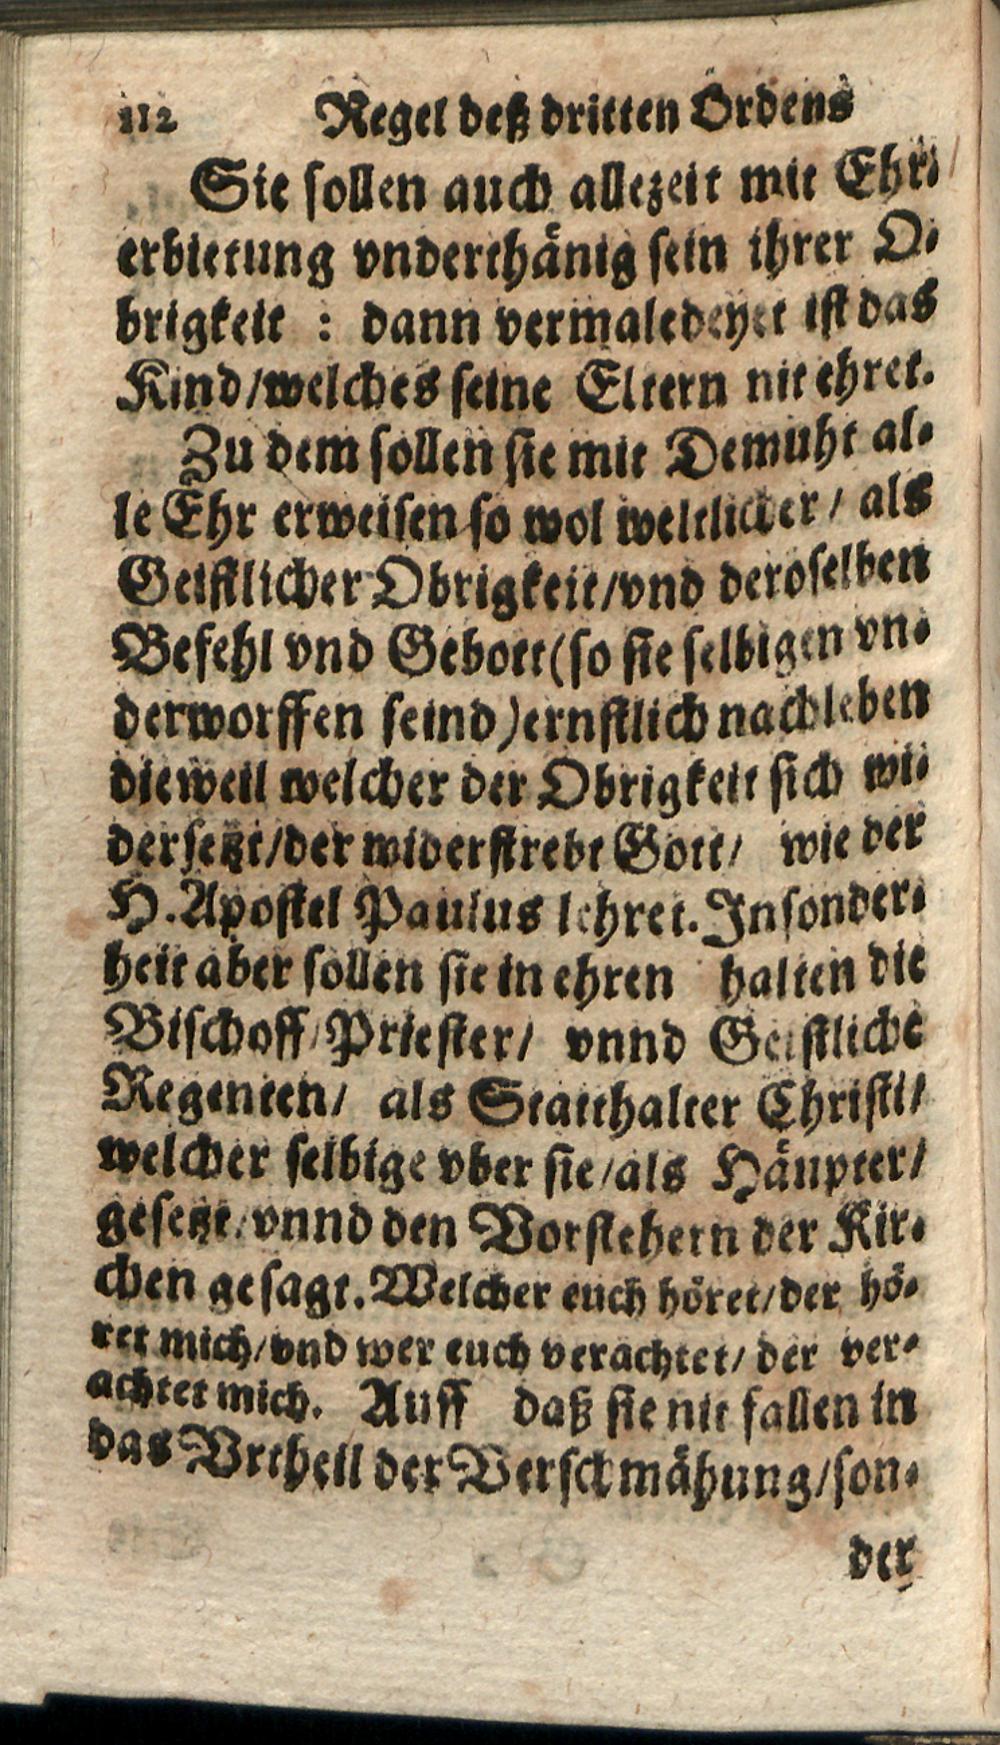 112 Regel deß dritten Ordens
Sie sollen auch allezeit mit Ehr-
erbietung vnderthänig sein ihrer O-
brigkeit : dann vermaledeyet ist das
Kind/welches seine Eltern nit ehret.
Zu dem sollen sie mit Demuht al-
le Ehr erweisen so wol weltlicher/ als
Geistlicher Obrigkeit/vnd deroselben
Befehl vnd Gebott(so sie selbigen vn-
derworffen seind)ernstlich nachleben
dieweil welcher der Obrigkeit sich wi-
dersetzt/der widerstrebt Gott/ wie der
H. Apostel Paulus lehret. Insonder-
heit aber sollen sie in ehren halten die
Bischoff/Priester/ vnnd Geistliche
Regenten/ als Statthalter Christi/
welcher selbige vber sie/als Häupter/
gesetzt/vnnd den Vorstehern der Kir-
chen gesagt. Welcher euch höret/der hö-
ret mich/vnd wer euch verachtet/ der ver-
achtet mich. Auff daß sie nit fallen in
das Vrtheil der Verschmähung/son-
der